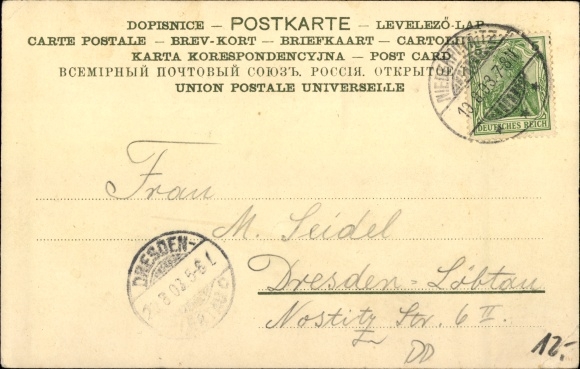 DOPISNICE — POSTKARTE — LEVELEZŐ-LAP
CARTE POSTALE — BREV-KORT — BRIEFKAART — CARTOLINA
KARTA KORESPONDENCYJNA — POST CARD
ВСЕМІРНЫЙ ПОЧТОВЫЙ СОЮЗЪ. РОССІЯ. ОТКРЫТОЕ
UNION POSTALE UNIVERSELLE
DEUTSCHES REICH
Frau
M. Seidel
DRESDEN-
Dresden-Löbtau
Nostitz Str. 6 II.
DD
12.-